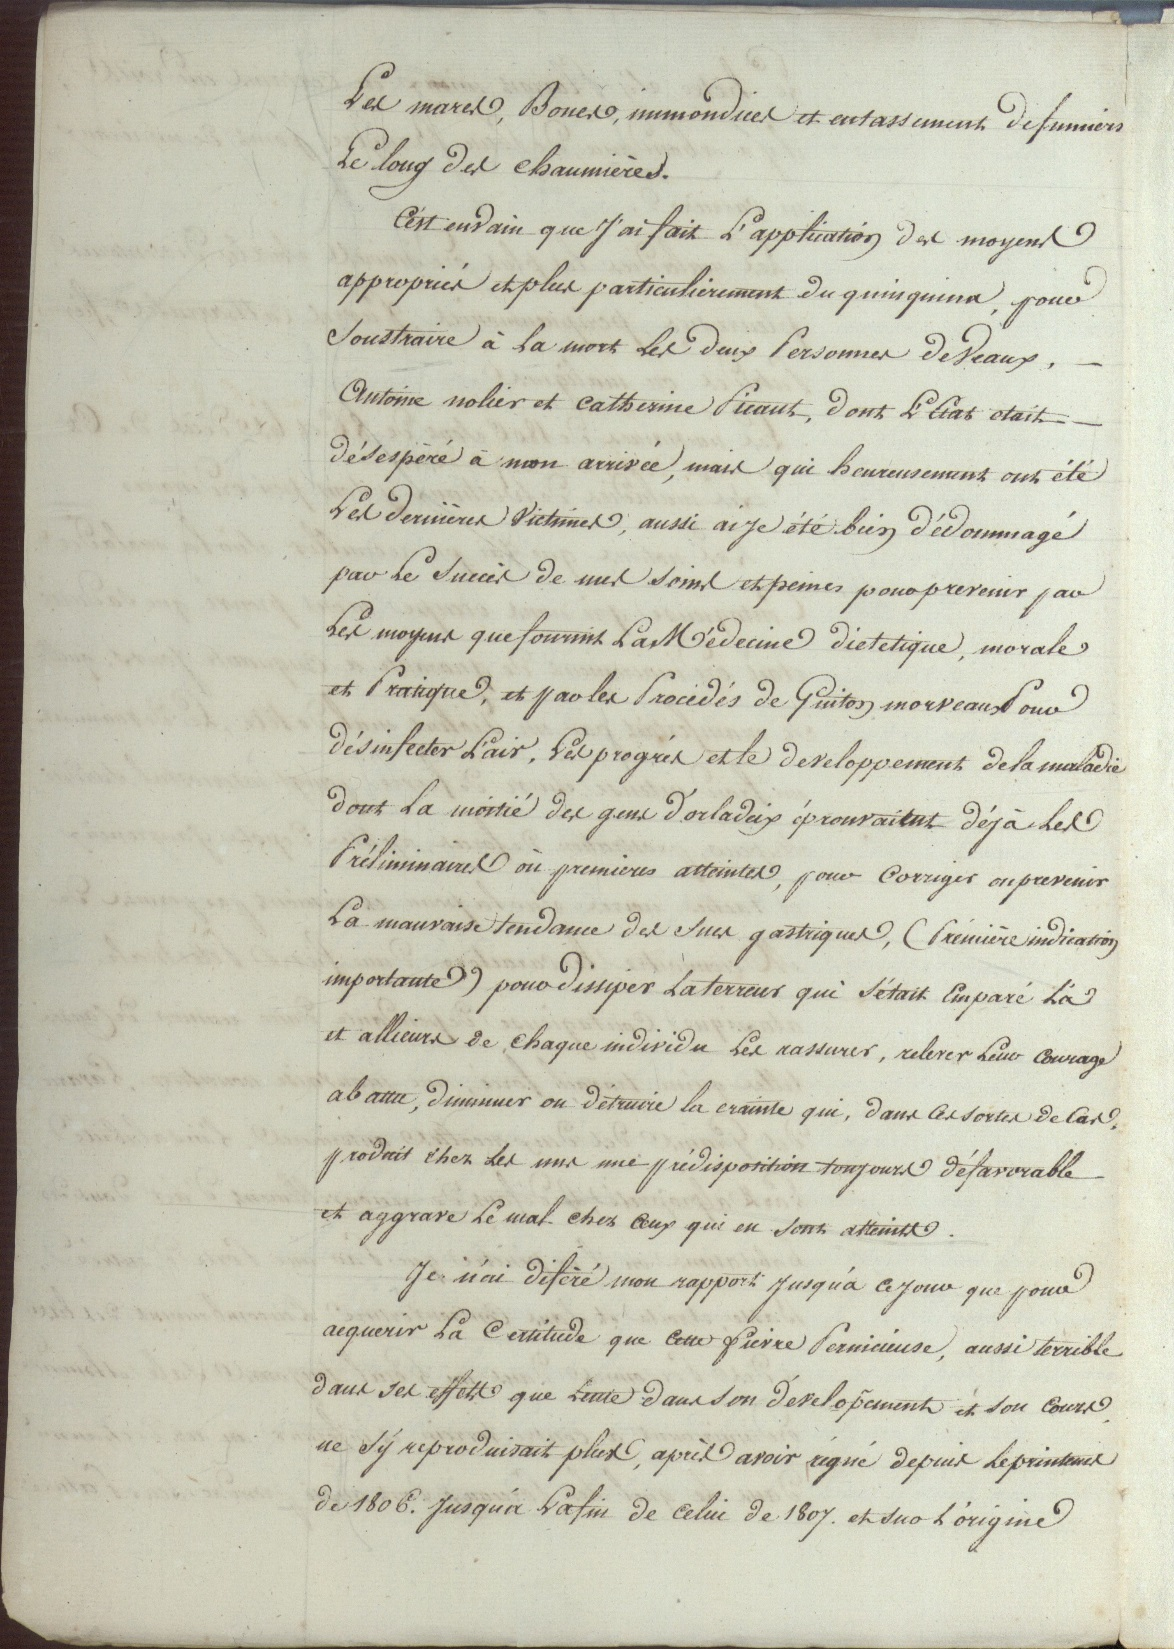 Les mares, Boues, immondices et entassement de fumiers
Le long des chaumières.
C'est envain que J'ai fait L'application des moyens
appropriés et plus particulierement du quinquina, pour
Soustraire à la mort Les deux Personnes de Veaux,
Antoine nolier et Catherine Picaut, dont L'Etat etait
désespéré à mon arrivée, mais qui heureusement ont été
Les dernières Victimes, aussi ai je été bien dédommagé
par Le Succès de mes soins et peines pour prevenir par
Les moyens que fournit La Médecine dietetique, morale
et Pratique, et par les Procédés de Guiton morveaux Pour
désinfecter L'air, Les progrés et le developpement de la maladie
dont La moitié des gens d'orladeix éprouvaient déjà Les
Préliminaires où premieres atteintes, pour Corriger ou prevenir
La mauvaise tendance des sucs gastriques, (Prémière indication
importante) pour dissiper La terreur qui s'était Emparé Là
et allieurs de chaque individu Les rassurer, relever Leur Courage
abattu, diminuer ou détruire la crainte qui, dans Ces sortes de Cas,
produit chez Les uns une prédisposition toujours défavorable
et aggrave Le mal chez Ceux qui en sont atteints.
Je n'ai diféré mon rapport Jusqu'a ce Jour que pour
acquerir La Certitude que Cette fievre Pernicieuse, aussi terrible
dans ses effets que Lente dans son dévelopement et son Cours,
ne s'y reproduisait plus, après avoir régné depuis le printems
de 1806. Jusqu'à La fin de Celui de 1807. et sur L'origine